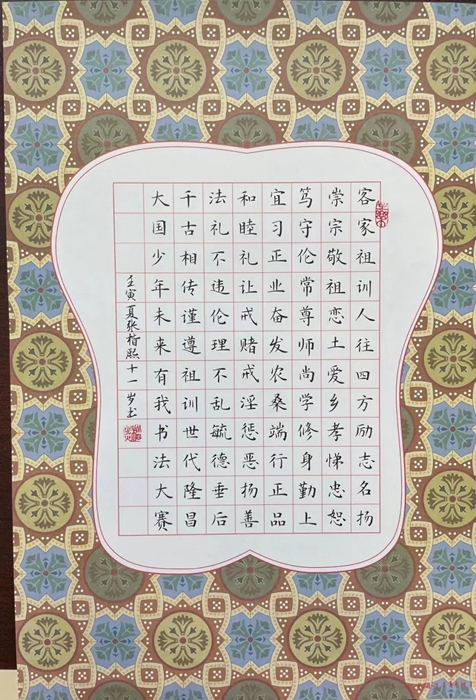 客家祖训人往四方励志名扬
崇宗敬祖恋土爱乡孝悌忠恕
笃守伦常尊师尚学修身勤上
宜习正业奋发农桑端行正品
和睦礼让戒赌戒淫惩恶扬善
法礼不违伦理不乱毓德垂后
千古相传谨遵祖训世代隆昌
大国少年未来有我书法大赛
壬寅夏张楷熙十一岁书